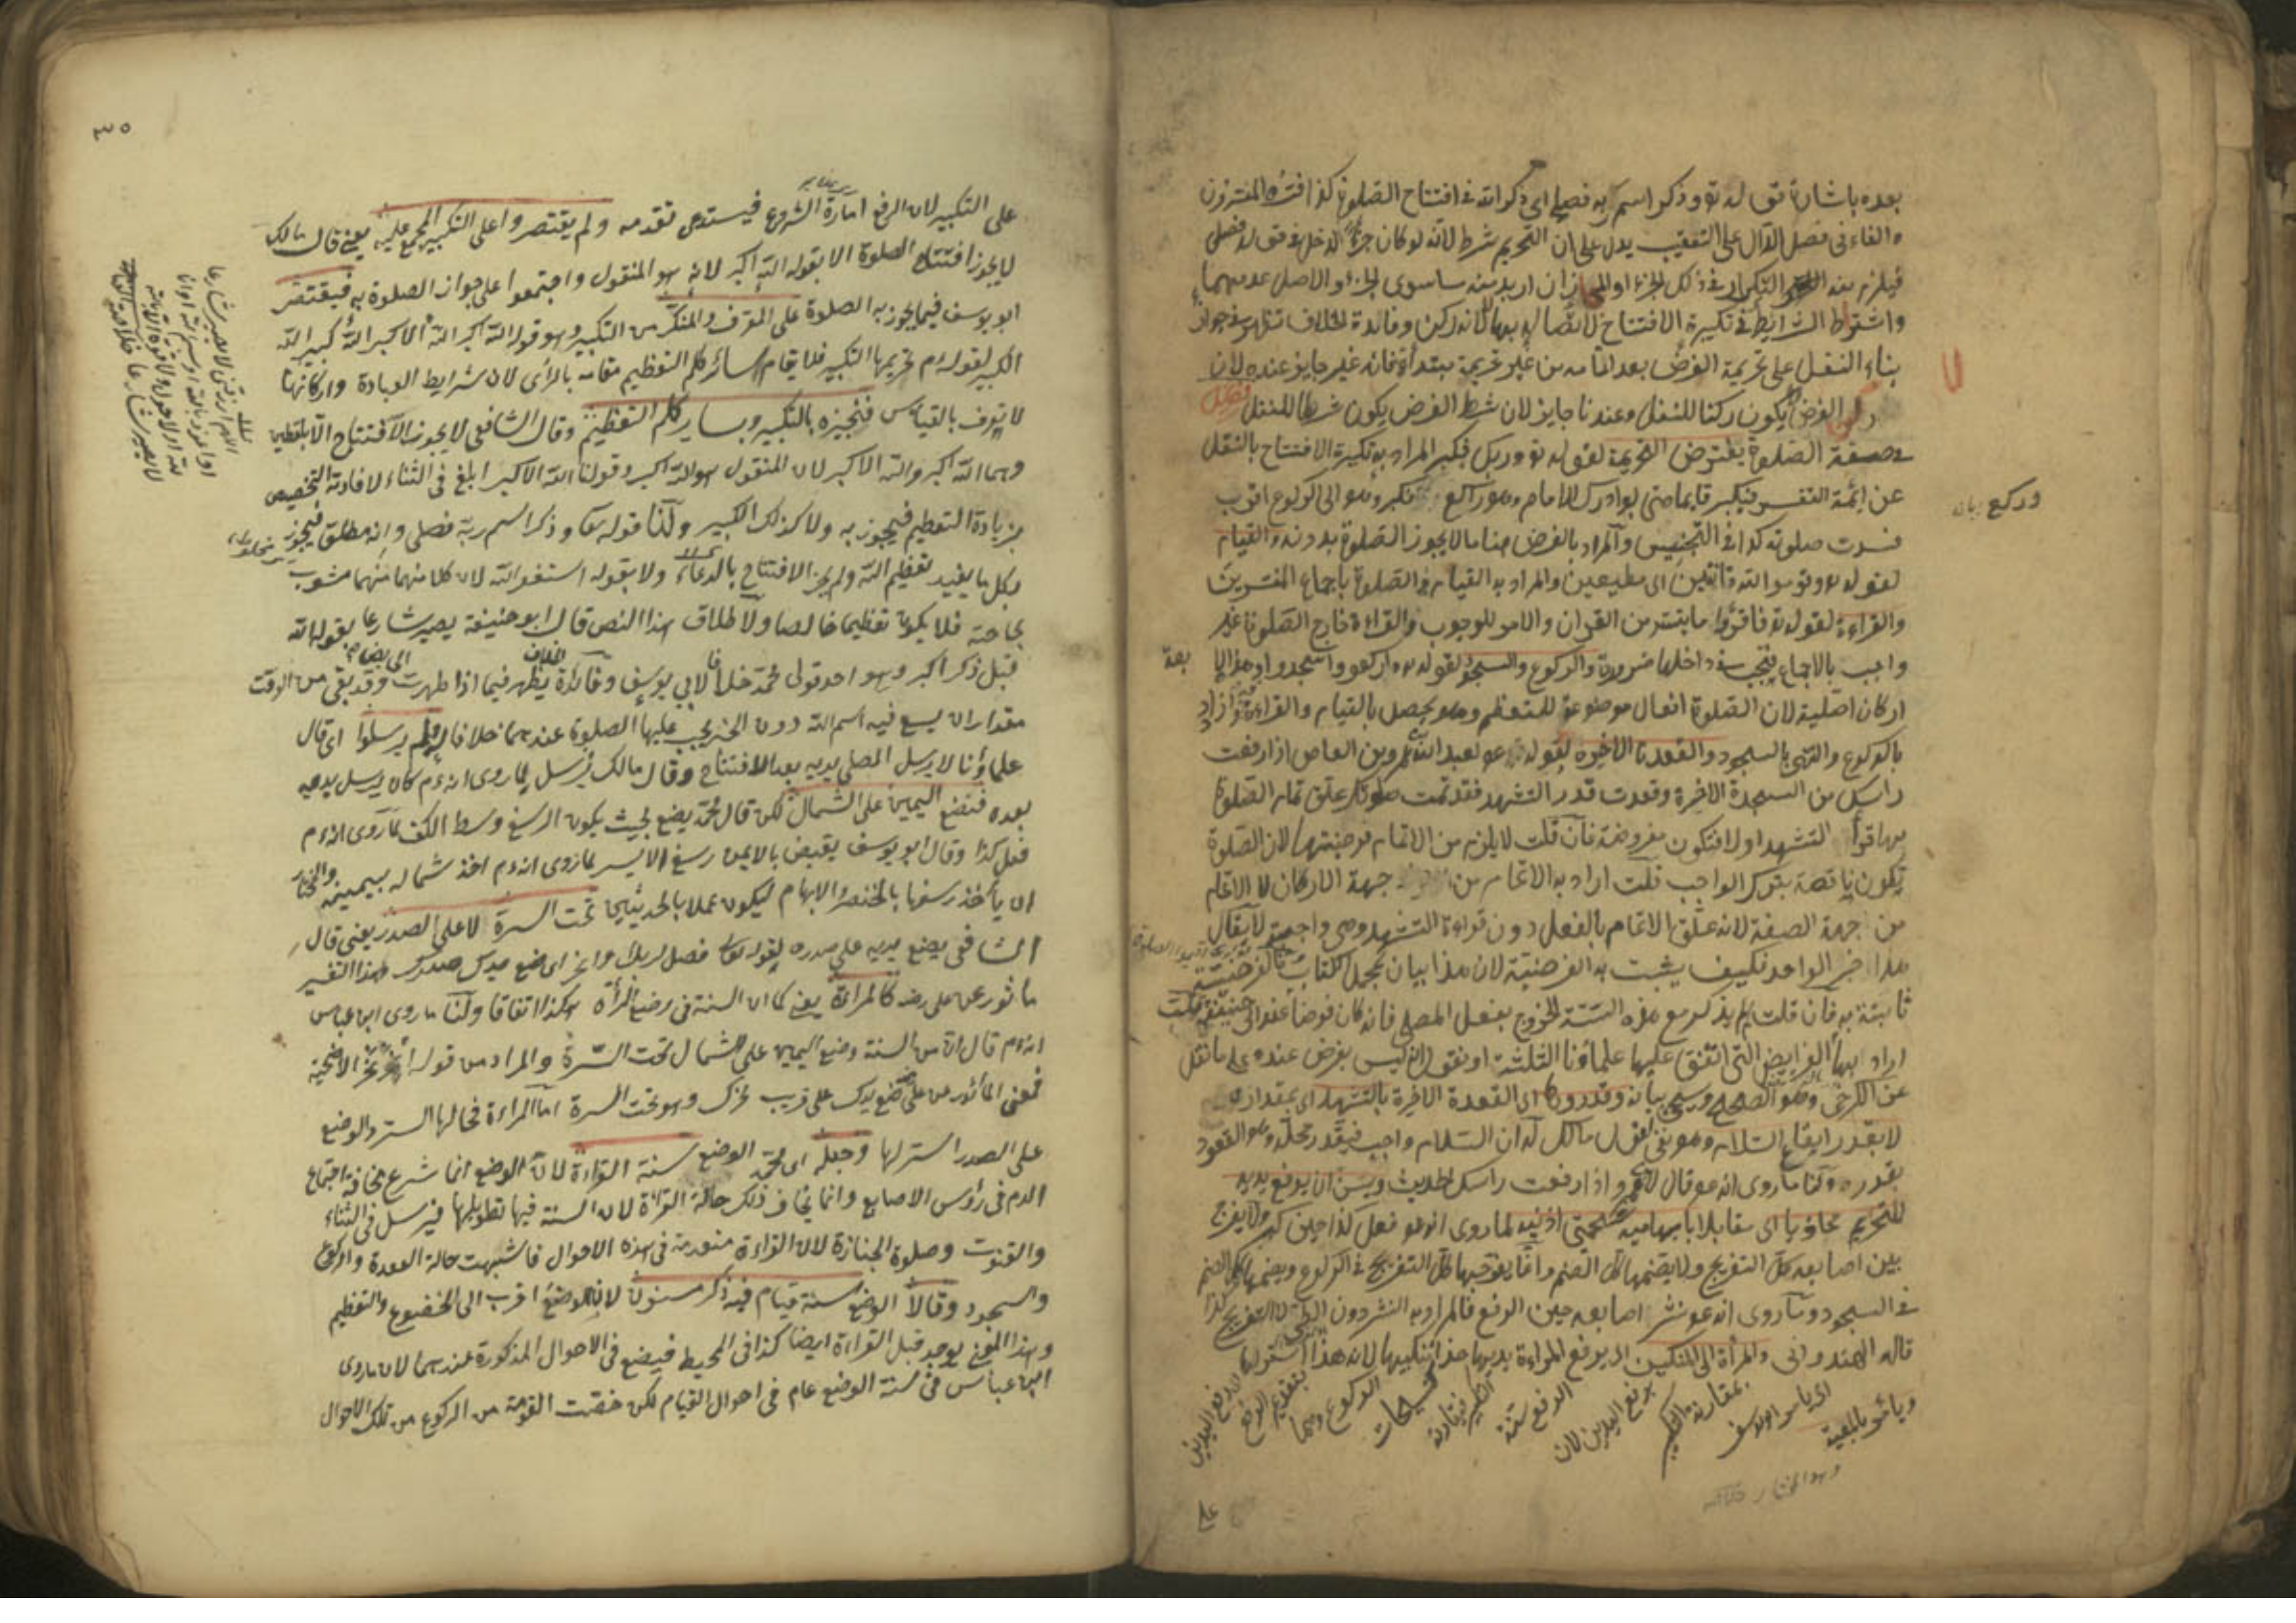 بعده باشارة قوله تع وذكر اسم ربه فصلى اى ذكر الله فى افتتاح الصلوة كذا فسّره المفسّرون
والفاء فى فصلى الدال على التعقيب يدل على ان التحريم شرط لانه لو كان جزءً لدخل فى قوله فصلى
فيلزم منه التكرار فى ذلك الجزء او المجاز ان اريد منه ما سوى الجزء والاصل عدمهما
واشتراط الشرايط فى تكبيرة الافتتاح لاتصاله بها لا لانه ركن وفائدة الخلاف تظهر فى جواز
بناء النفل على تحريمة الفرض بعد اتمامه من غير تحريمة مبتدأة فانه غير جايز عنده لان
ركن الفرض لا يكون ركنا للنفل وعندنا جايز لان شرط الفرض يكون شرطا للنفل
فصل
فى صفة الصلوة يفترض التحريمة لقوله تع وربك فكبر المراد به تكبيرة الافتتاح بالنقل
عن ائمة التفسير فيكبر قايما حتى لو ادرك الامام وهو راكع فكبر وهو الى الركوع اقرب
وركع
فسدت صلوته كذا فى التجنيس والمراد بالفرض هنا ما لا يجوز الصلوة بدونه والقيام
لقوله تع وقوموا لله قانتين اى مطيعين والمراد به القيام فى الصلوة باجماع المفسرين
والقراءة لقوله تع فاقرؤا ما تيسر من القران والامر للوجوب والقراءة خارج الصلوة غير
واجب بالاجماع فيجب فى داخلها ضرورة والركوع والسجود لقوله تع واركعوا واسجدوا وهذه
اركان اصلية لان الصلوة افعال موضوعة للتعظيم وهو يحصل بالقيام والقراءة وازداد
بالركوع والتناهى بالسجود والقعدة الاخيرة لقوله عم لعبد الله بن عمرو بن العاص اذا رفعت
راسك من السجدة الاخيرة وقعدت قدر التشهد فقد تمت صلوتك علق تمام الصلوة
بها قرأ التشهد اولا فتكون مفروضة فان قلت لا يلزم من الاتمام فرضيتها لان الصلوة
تكون ناقصة بترك الواجب قلت اراد به الاتمام من جهة الاركان لا الاتمام
من جهة الصفة لانه علق الاتمام بالفعل دون قراءة التشهد وهى واجبة لا يقال
هذا خبر الواحد فكيف يثبت به الفرضية لان هذا بيان لمجمل الكتاب فالفرضية
ثابتة به فان قلت لم لم يذكر مع هذه الستة الخروج بفعل المصلى فانه كان فرضا عند ابى حنيفة قلت
اراد بها الفرايض التى اتفق عليها علماؤنا الثلثة او نقول انه ليس بفرض عنده على ما نقل
عن الكرخى وهو الصحيح وسيجئ بيانه وقدروها اى القعدة الاخيرة بالتشهد اى بمقداره
لا بقدر ايقاع السلام وهو نفى لقول مالك له ان السلام واجب فيقدر محله وهو القعود
بقدره ولنا ما روى انه عم قال لابن عمرو اذا رفعت راسك الحديث ويسن ان يرفع يديه
للتحريم محاذيا اى مقابلا بابهاميه شحمتى اذنيه لما روى انه عم فعل كذا حين كبر ولا يفرج
بين اصابعه كل التفريج ولا يضمها كل الضم وانما يفرجها كل التفريج فى الركوع ويضمها كل الضم
فى السجود وما روى انه عم نشر اصابعه حين الرفع فالمراد به النشر دون الطى لا التفريج كذا
قاله الهندوانى والمرأة الى المنكبين اى يرفع المراءة يديها حذاء منكبيها لانه هذا استر لها
ويأمر بالمعية اى يامر ابو يوسف بمقارنة التكبير برفع اليدين لان الرفع سنة التكبير فيقارنه كتسبيحات الركوع وهما بتقديم الرفع
وهو المختار
٣٥
على التكبير لان الرفع امارة الشروع فيستدعى تقدمه ولم يقتصروا على التكبير المجمع عليه يعنى قال مالك
لا يجوز افتتاح الصلوة الا بقوله الله اكبر لانه هو المنقول واجتمعوا على جواز الصلوة به فيقتصر
ابو يوسف فيما يجوز به الصلوة على المعرف والمنكر من التكبير وهو قوله الله اكبر الله الاكبر الله كبير الله
الكبير لقوله عم تحريمها التكبير فلا يقام سائر كلم التعظيم مقامه بالرأى لان شرايط العبادة واركانها
لا يعرف بالقياس فنجيزه بالتكبير وبساير كلم التعظيم وقال الشافعى لا يجوز الافتتاح الا بلفظين
وهما الله اكبر والله الاكبر لان المنقول هو الله اكبر وقولنا الله الاكبر ابلغ فى الثناء لافادته التخصيص
بزيادة التعظيم فيجوز به ولا كذلك الكبير ولنا قوله تعا وذكر اسم ربه فصلى وانه مطلق فيجوز
بكل ما يفيد تعظيم الله ولم يجز الافتتاح بالدعاء ولا بقوله استغفر الله لان كلا منهما مشوب
بحاجة فلا يكون تعظيما خالصا ولاطلاق هذا النص قال ابو حنيفة يصير شارعا بقوله الله
قبل ذكر اكبر وهو احد قولى محمد خلافا لابى يوسف وفائدة الخلاف يظهر فيما اذا طهرت وقد بقى من الوقت
مقدار ان يسع فيه اسم الله دون الخبر يجب عليها الصلوة عندهما خلافا له ولم يرسلوا اى قال
علماؤنا لا يرسل المصلى يديه بعد الافتتاح وقال مالك يرسل لما روى انه عم كان يرسل يديه
بعده فنضع اليمين على الشمال لكن قال محمد يضع بحيث يكون الرسغ وسط الكف لما روى انه عم
فعل كذا وقال ابو يوسف يقبض بالايمن رسغ الايسر لما روى انه عم اخذ شماله بيمينه والمختار
ان يأخذ رسغها بالخنصر والابهام ليكون عملا بالحديثين تحت السرة لا على الصدر يعنى قال
الشافعى يضع يديه على صدره لقوله تعا فصل لربك وانحر اى ضع يدك صدرك وهذا التفسير
ماثور عن على رضه كالمراءة يعنى كما ان السنة فى وضع المرأة هكذا اتفاقا ولنا ما روى ابن عباس
انه عم قال ان من السنة وضع اليمين على الشمال تحت السرة والمراد من قوله وانحر نحر الاضحية
فمعنى المأثور عن على ضع يدك على قريب نحرك وهو تحت السرة اما المراءة فحالها الستر والوضع
على الصدر استر لها وجعله اى محمد الوضع سنة القراءة لان الوضع انما شرع مخافة اجتماع
الدم فى رؤس الاصابع وانما يخاف ذلك حالة القراءة لان السنة فيها تطويلها فيرسل فى الثناء
والقنوت وصلوة الجنازة لان القراءة منعدمة فى هذه الاحوال فاشبهت حالة القعدة والركوع
والسجود وقالا الوضع سنة قيام فيه ذكر مسنون لان الوضع اقرب الى الخضوع والتعظيم
وهذا المعنى يوجد قبل القراءة ايضا كذا فى المحيط فيضع فى الاحوال المذكورة عندهما لان ما روى
ابن عباس فى سنة الوضع عام فى احوال القيام لكن خصت القومة من الركوع من تلك الاحوال